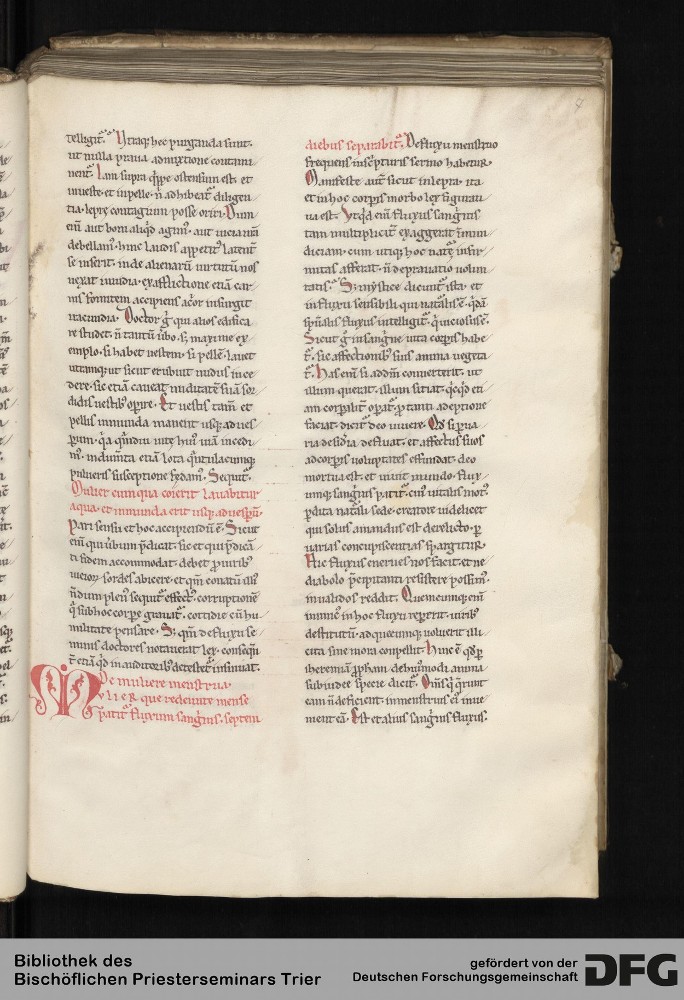 telligit᷑. Utraq; hec purganda sunt.
ut nulla praua admixtione contami
nent᷑. Iam supra q̅ppe ostensum est. et
inueste et inpelle. n̄ adhibeat᷑ diligen
tia. lepre contagium posse oriri. Dum
eni̅ aut boni aliq̇d agim᷒. aut uicia
debellam᷒. hinc laudis appetit᷒ latent᷑
se inserit. inde alienaru̅ uirtutu̅ nos
uexat inuidia. ex afflictione etia̅ car
nis fomitem accipiens acrior insurgit
iracundia. Doctor g̊ qui alios edifica
re studet. n̄ tantu̅ u̅bo. sꝫ maxime ex
emplo. si habet uestem. si pelle̅. lauet
utramq; ut sicut erubuit nudus ince
dere. sic etia̅ caueat
didis uestib᷒ op̱ire. Et uestis tam̅ et
pellis inmunda manent usq; ad ues
p̱um. q̇a q̅mdiu uite hui᷒ uia̅ incedi
m᷒. indum̅ta etia̅ lota
pulueris susceptione fedam᷒. Sequit᷑.
Mulier cum qua coierit lauabitur
aqua. et inmunda erit usq; ad uesp̱u̅.
Pari sensu et hoc accipiendu̅ ē. Sicut
eni̅ qui u̅bum p̄dicat. sic et qui p̄dica̅
ti fidem accommodat. debet p̱ uiribus
uicioꝝ sordes abicere. et q̅m conatu̅ illi᷒
n̄dum plen᷒ sequit᷑ effect᷒. corruptione̅
q̅ sub hoc corp̱e grauat᷑. cottidie cu̅ hu
militate pensare. Sꝫ q̅m de fluxu se
minis doctores notauerat lex. conseq̅n
t᷑ etia̅ q̇d in auditorib᷒ detestet᷑ insinuat.
De muliere menstrua.
MULIER que redeunte mense
patit᷑ fluxum sanguinis. septem
diebus separabit᷑. De fluxu menstruo
frequens in sc̅pturis sermo habetur.
Manifeste aut̅ sicut in lepra. ita
et in hoc corp̱is morbo lex figurati
ua est. Utq̇d eni̅ fluxus sanguinis
tam multiplicit᷑ exaggerat
diciam. cum utiq; hoc nat᷑e infir
mitas afferat. n̄ deprauatio uolun
tatis. Sꝫ mystice dicunt᷑ ista. et
in fluxu sensibili qui natalis ē. q̇da̅
sp̅ualis fluxus intelligit᷑. qui uiciosus ē.
Sicut g̊ in sanguine uita corp̱is habe
t᷑. sic affectionib᷒ suis anima uegeta
t᷑. Has eni̅ si ad d̅m conuerterit. ut
illum querat. illum sitiat. q̇cq̇d eti
am corp̱alit᷑ op̱at᷑. p̱ tanti adeptione
faciat. dicit᷑ deo uiuere. Qd̅ si p̱ ua
ria desid̅ia defluat. et affectus suos
ad corp̱eas uoluptates effundat. deo
mortua est. et uiuit mundo. flux
umq; sanguinis patit᷑. cui᷒ uitalis mot᷒.
p̱dita nat᷑ali sede. creatore uidelicet
qui solus amandus est derelicto. p̱
uarias concupiscentias sp̱argitur.
Hic fluxus enerues nos facit. et ne
diabolo p̄cipitanti resistere possim᷒.
inualidos reddit. Quemcumq; eni̅
inimic᷒ in hoc fluxu rep̱erit. uirib᷒
destitutu̅. ad quecumq; uoluerit illi
cita sine mora conpellit. Hinc ē q̇d p̱
iheremia̅ p̅pham. de huiusmodi anima
sub iudee specie dicit᷑. Om̅s qui querunt
eam n̄ deficient. in menstruis ei᷒ inue
nient ea̅. Est et alius sanguinis fluxus.
Bibliothek des
Bischöflichen Priesterseminars Trier
gefördert von der
Deutschen Forschungsgemeinschaft
DFG